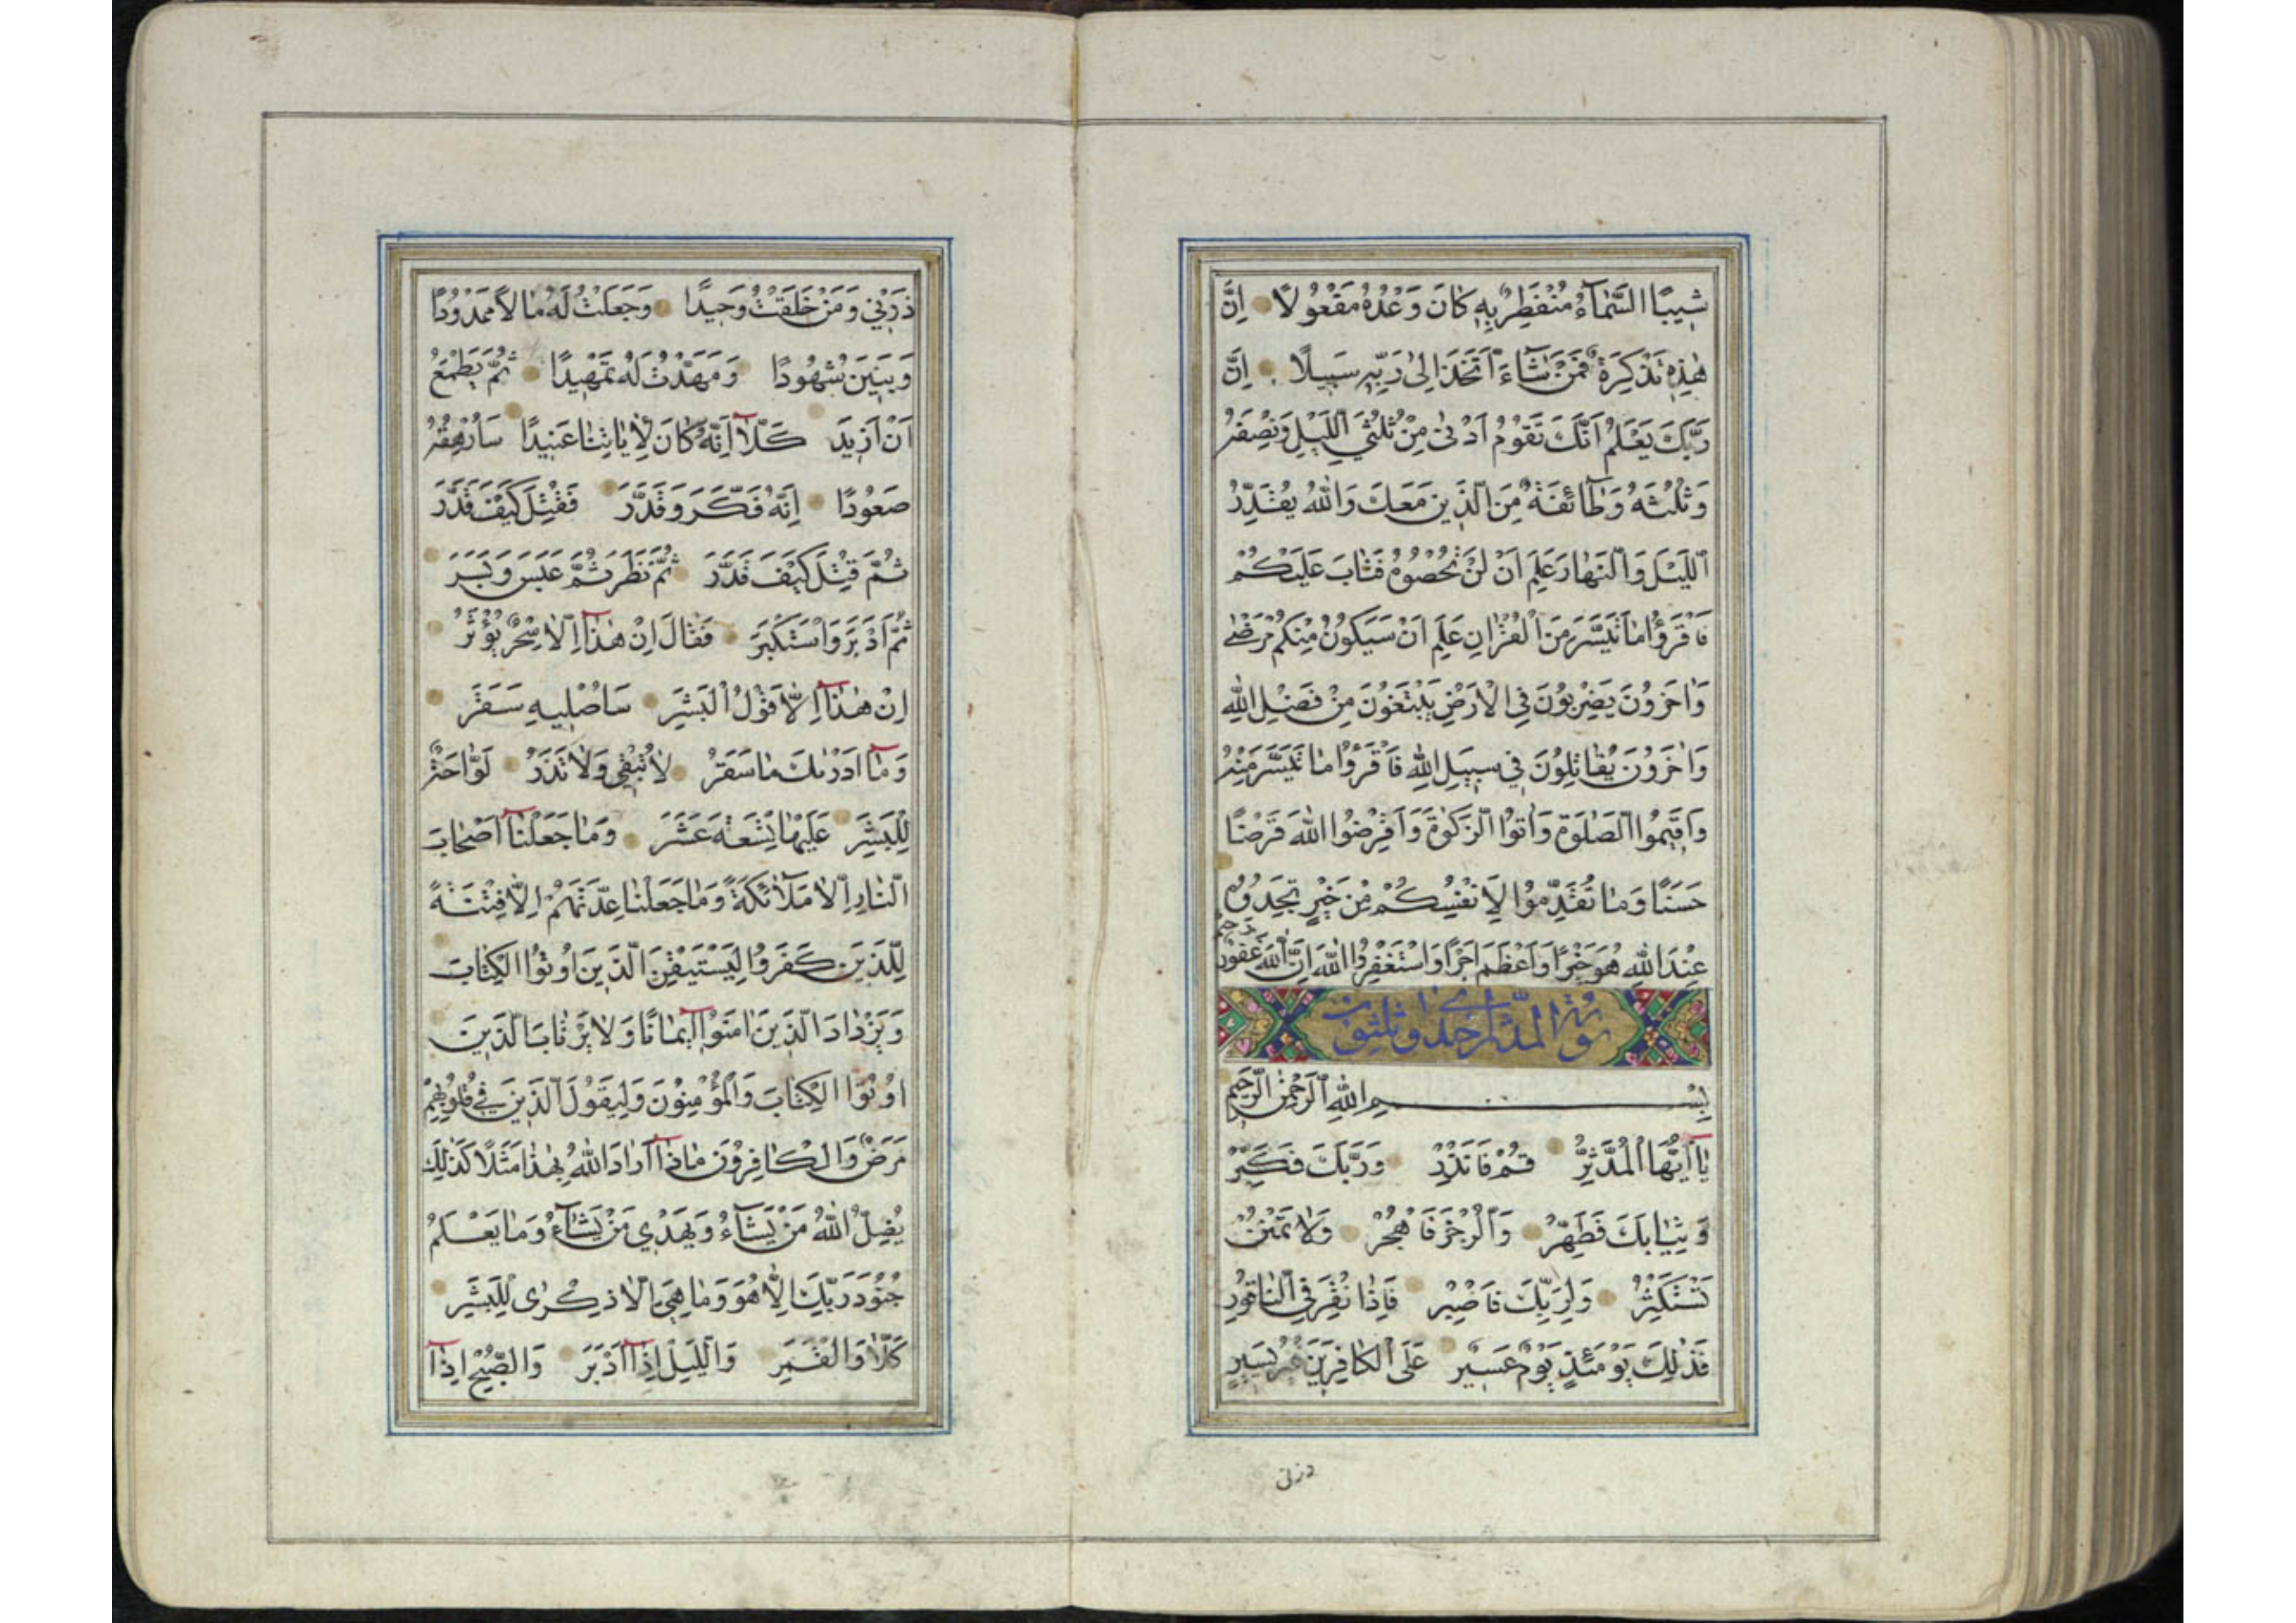 شِيبًا السَّمَآءُ مُنْفَطِرٌ بِهِ كَانَ وَعْدُهُ مَفْعُولًا اِنَّ
هٰذِهِ تَذْكِرَةٌ فَمَنْ شَآءَ اتَّخَذَ اِلٰى رَبِّهِ سَبِيلًا اِنَّ
رَبَّكَ يَعْلَمُ اَنَّكَ تَقُومُ اَدْنٰى مِنْ ثُلُثَيِ الَّيْلِ وَنِصْفَهُ
وَثُلُثَهُ وَطَآئِفَةٌ مِنَ الَّذِينَ مَعَكَ وَاللّٰهُ يُقَدِّرُ
اللَّيْلَ وَالنَّهَارَ عَلِمَ اَنْ لَنْ تُحْصُوهُ فَتَابَ عَلَيْكُمْ
فَاقْرَؤُا مَا تَيَسَّرَ مِنَ الْقُرْاٰنِ عَلِمَ اَنْ سَيَكُونُ مِنْكُمْ مَرْضٰى
وَاٰخَرُونَ يَضْرِبُونَ فِي الْاَرْضِ يَبْتَغُونَ مِنْ فَضْلِ اللّٰهِ
وَاٰخَرُونَ يُقَاتِلُونَ فِي سَبِيلِ اللّٰهِ فَاقْرَؤُا مَا تَيَسَّرَ مِنْهُ
وَاَقِيمُوا الصَّلٰوةَ وَاٰتُوا الزَّكٰوةَ وَاَقْرِضُوا اللّٰهَ قَرْضًا
حَسَنًا وَمَا تُقَدِّمُوا لِاَنْفُسِكُمْ مِنْ خَيْرٍ تَجِدُوهُ
عِنْدَ اللّٰهِ هُوَ خَيْرًا وَاَعْظَمَ اَجْرًا وَاسْتَغْفِرُوا اللّٰهَ اِنَّ اللّٰهَ غَفُورٌ رَحِيمٌ
سورة المدثر احدى وثلثون
بِسْمِ اللّٰهِ الرَّحْمٰنِ الرَّحِيمِ
يَآ اَيُّهَا الْمُدَّثِّرُ قُمْ فَاَنْذِرْ وَرَبَّكَ فَكَبِّرْ
وَثِيَابَكَ فَطَهِّرْ وَالرُّجْزَ فَاهْجُرْ وَلَا تَمْنُنْ
تَسْتَكْثِرُ وَلِرَبِّكَ فَاصْبِرْ فَاِذَا نُقِرَ فِي النَّاقُورِ
فَذٰلِكَ يَوْمَئِذٍ يَوْمٌ عَسِيرٌ عَلَى الْكَافِرِينَ غَيْرُ يَسِيرٍ
ذرنى
ذَرْنِي وَمَنْ خَلَقْتُ وَحِيدًا وَجَعَلْتُ لَهُ مَالًا مَمْدُودًا
وَبَنِينَ شُهُودًا وَمَهَّدْتُ لَهُ تَمْهِيدًا ثُمَّ يَطْمَعُ
اَنْ اَزِيدَ كَلَّآ اِنَّهُ كَانَ لِاٰيَاتِنَا عَنِيدًا سَاُرْهِقُهُ
صَعُودًا اِنَّهُ فَكَّرَ وَقَدَّرَ فَقُتِلَ كَيْفَ قَدَّرَ
ثُمَّ قُتِلَ كَيْفَ قَدَّرَ ثُمَّ نَظَرَ ثُمَّ عَبَسَ وَبَسَرَ
ثُمَّ اَدْبَرَ وَاسْتَكْبَرَ فَقَالَ اِنْ هٰذَآ اِلَّا سِحْرٌ يُؤْثَرُ
اِنْ هٰذَآ اِلَّا قَوْلُ الْبَشَرِ سَاُصْلِيهِ سَقَرَ
وَمَآ اَدْرٰىكَ مَا سَقَرُ لَا تُبْقِي وَلَا تَذَرُ لَوَّاحَةٌ
لِلْبَشَرِ عَلَيْهَا تِسْعَةَ عَشَرَ وَمَا جَعَلْنَآ اَصْحَابَ
النَّارِ اِلَّا مَلَآئِكَةً وَمَا جَعَلْنَا عِدَّتَهُمْ اِلَّا فِتْنَةً
لِلَّذِينَ كَفَرُوا لِيَسْتَيْقِنَ الَّذِينَ اُوتُوا الْكِتَابَ
وَيَزْدَادَ الَّذِينَ اٰمَنُوٓا اِيمَانًا وَلَا يَرْتَابَ الَّذِينَ
اُوتُوا الْكِتَابَ وَالْمُؤْمِنُونَ وَلِيَقُولَ الَّذِينَ فِي قُلُوبِهِمْ
مَرَضٌ وَالْكَافِرُونَ مَاذَآ اَرَادَ اللّٰهُ بِهٰذَا مَثَلًا كَذٰلِكَ
يُضِلُّ اللّٰهُ مَنْ يَشَآءُ وَيَهْدِي مَنْ يَشَآءُ وَمَا يَعْلَمُ
جُنُودَ رَبِّكَ اِلَّا هُوَ وَمَا هِيَ اِلَّا ذِكْرٰى لِلْبَشَرِ
كَلَّا وَالْقَمَرِ وَالَّيْلِ اِذَآ اَدْبَرَ وَالصُّبْحِ اِذَآ